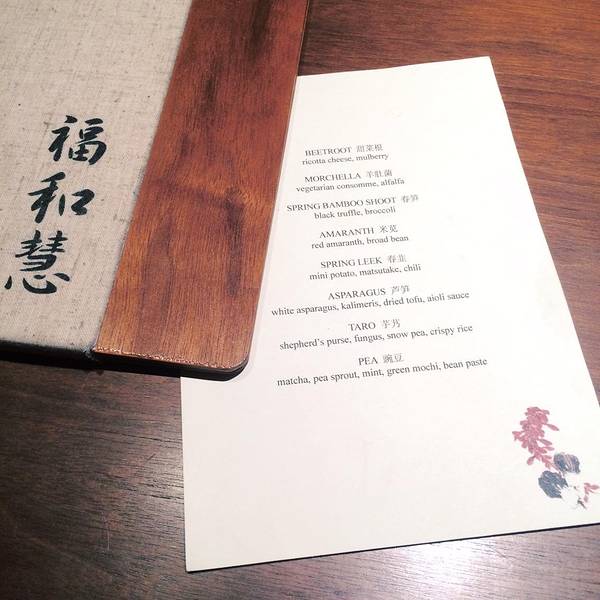 福和慧
BEETROOT 甜菜根
ricotta cheese, mulberry
MORCHELLA 羊肚菌
vegetarian consomme, alfalfa
SPRING BAMBOO SHOOT 春笋
black truffle, broccoli
AMARANTH 米苋
red amaranth, broad bean
SPRING LEEK 春韭
mini potato, matsutake, chili
ASPARAGUS 芦笋
white asparagus, kalimeris, dried tofu, aioli sauce
TARO 芋艿
shepherd's purse, fungus, snow pea, crispy rice
PEA 豌豆
matcha, pea sprout, mint, green mochi, bean paste